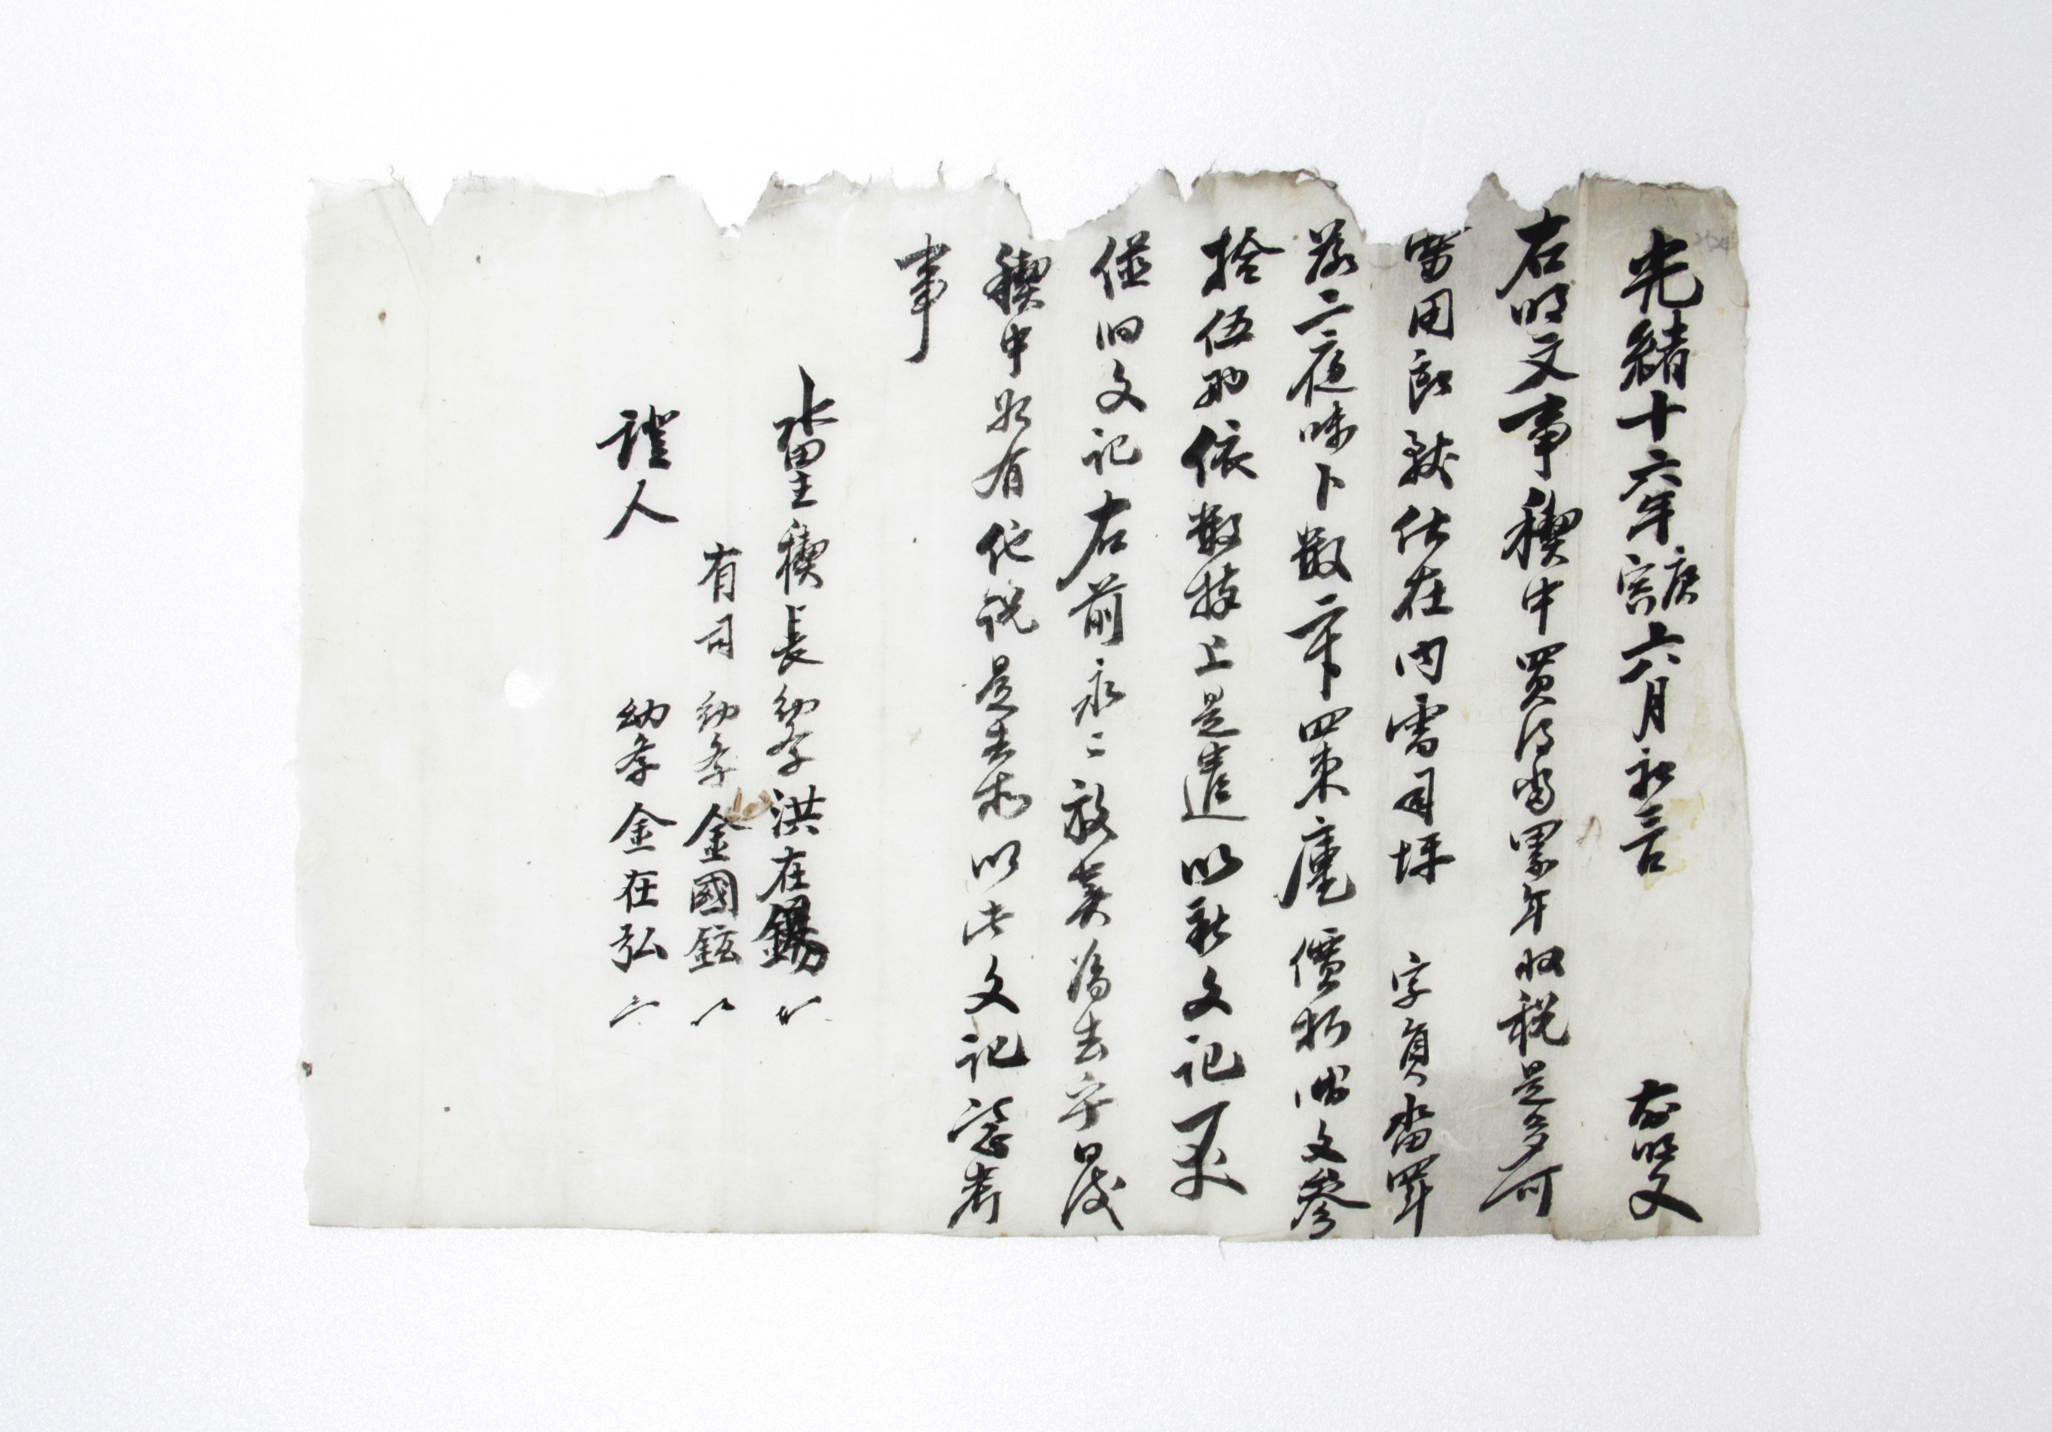 光緒十六年庚寅六月初二日 前明文
右明文事稧中買得畓累年收稅是多可
要用所致伏在內雷司坪 字員畓單
落二夜味卜數二卜四束庫價折湖文參
拾伍兩依數捧上是遣以新文記一丈
倂旧文記右前永〻放賣爲去乎日後
稧中若有他說是去等以此文記憑考
事
畓主稧長幼學洪在錫
有司幼學金國鉉
證人 幼學金在弘